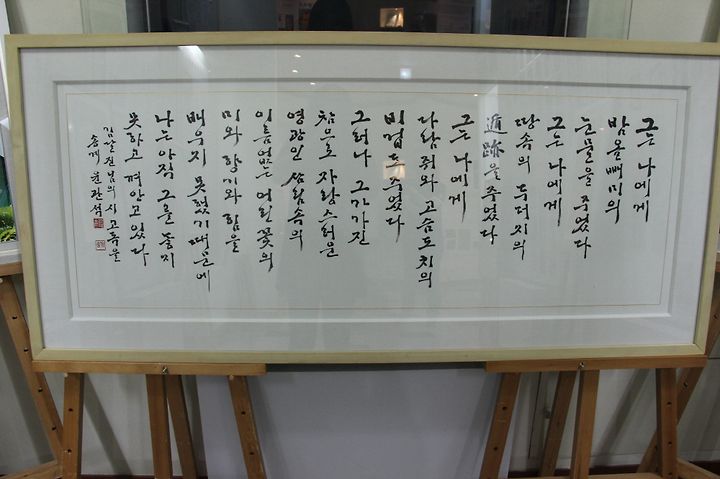 그는 나에게
밤 올빼미의
눈물을 주었다
그는 나에게
땅속의 두더지의
遁跡을 주었다
그는 나에게
다람쥐와 고슴도치의
비겁도 주었다
그러나 그가 가진
참으로 자랑스러운
영광인 삼림속의
이름없는 어린 꽃의
미와 향기와 힘을
배우지 못했기 때문에
나는 아직 그를 놓지
못하고 껴안고 있다
김달진님의 시 고독을